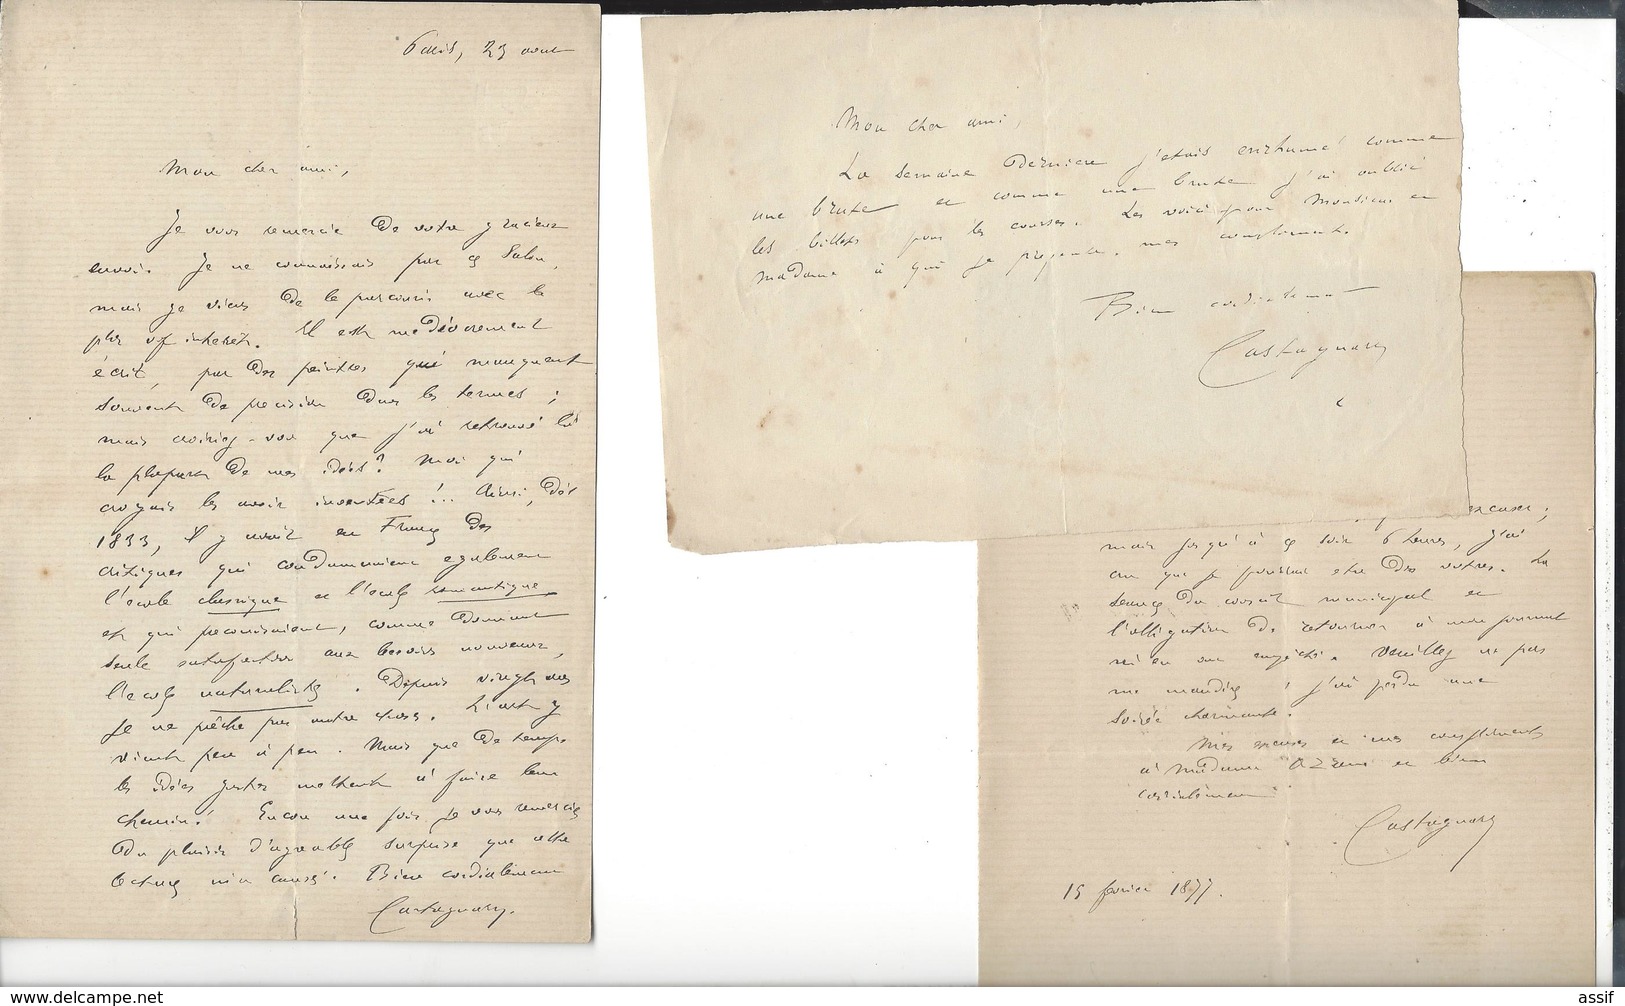 Paris, 23 aout
Mon cher ami,
Je vous remercie de votre gracieux
envoi. Je ne connaissais pas ce Salon,
mais je viens de le parcourir avec le
plus vif intérêt. Il est médiocrement
écrit, par des peintres qui manquent
souvent de précision dans les termes ;
mais croiriez-vous que j'ai retrouvé là
la plupart de mes idées ? Moi qui
croyais les avoir inventées !.. Ainsi, dès
1833, il y avait en France des
critiques qui condamnaient également
l'école classique et l'école romantique
et qui préconisaient, comme donnant
seule satisfaction aux besoins nouveaux,
l'école naturaliste. Depuis vingt ans
je ne prêche pas autre chose. L'art y
vient peu à peu. Mais que de temps
les idées justes mettent à faire leur
chemin ! Encore une fois je vous remercie
du plaisir d'agréable surprise que cette
lecture m'a causé. Bien cordialement
Castagnary.
Mon cher ami,
La semaine dernière j'étais enrhumé comme
une brute et comme une brute j'ai oublié
les billets pour les courses. Les voici pour Monsieur et
Madame à qui je présente mes compliments.
Bien cordialement
Castagnary
excuser ;
mais jusqu'à ce soir 6 heures, j'ai
cru que je pourrais être des vôtres. La
séance du conseil municipal et
l'obligation de retourner à mon journal
m'en ont empêché. Veuillez ne pas
me maudire ; j'ai perdu une
soirée charmante.
Mes excuses et mes compliments
à Madame et bien
cordialement
Castagnary
15 février 1877.
assif
www.delcampe.net